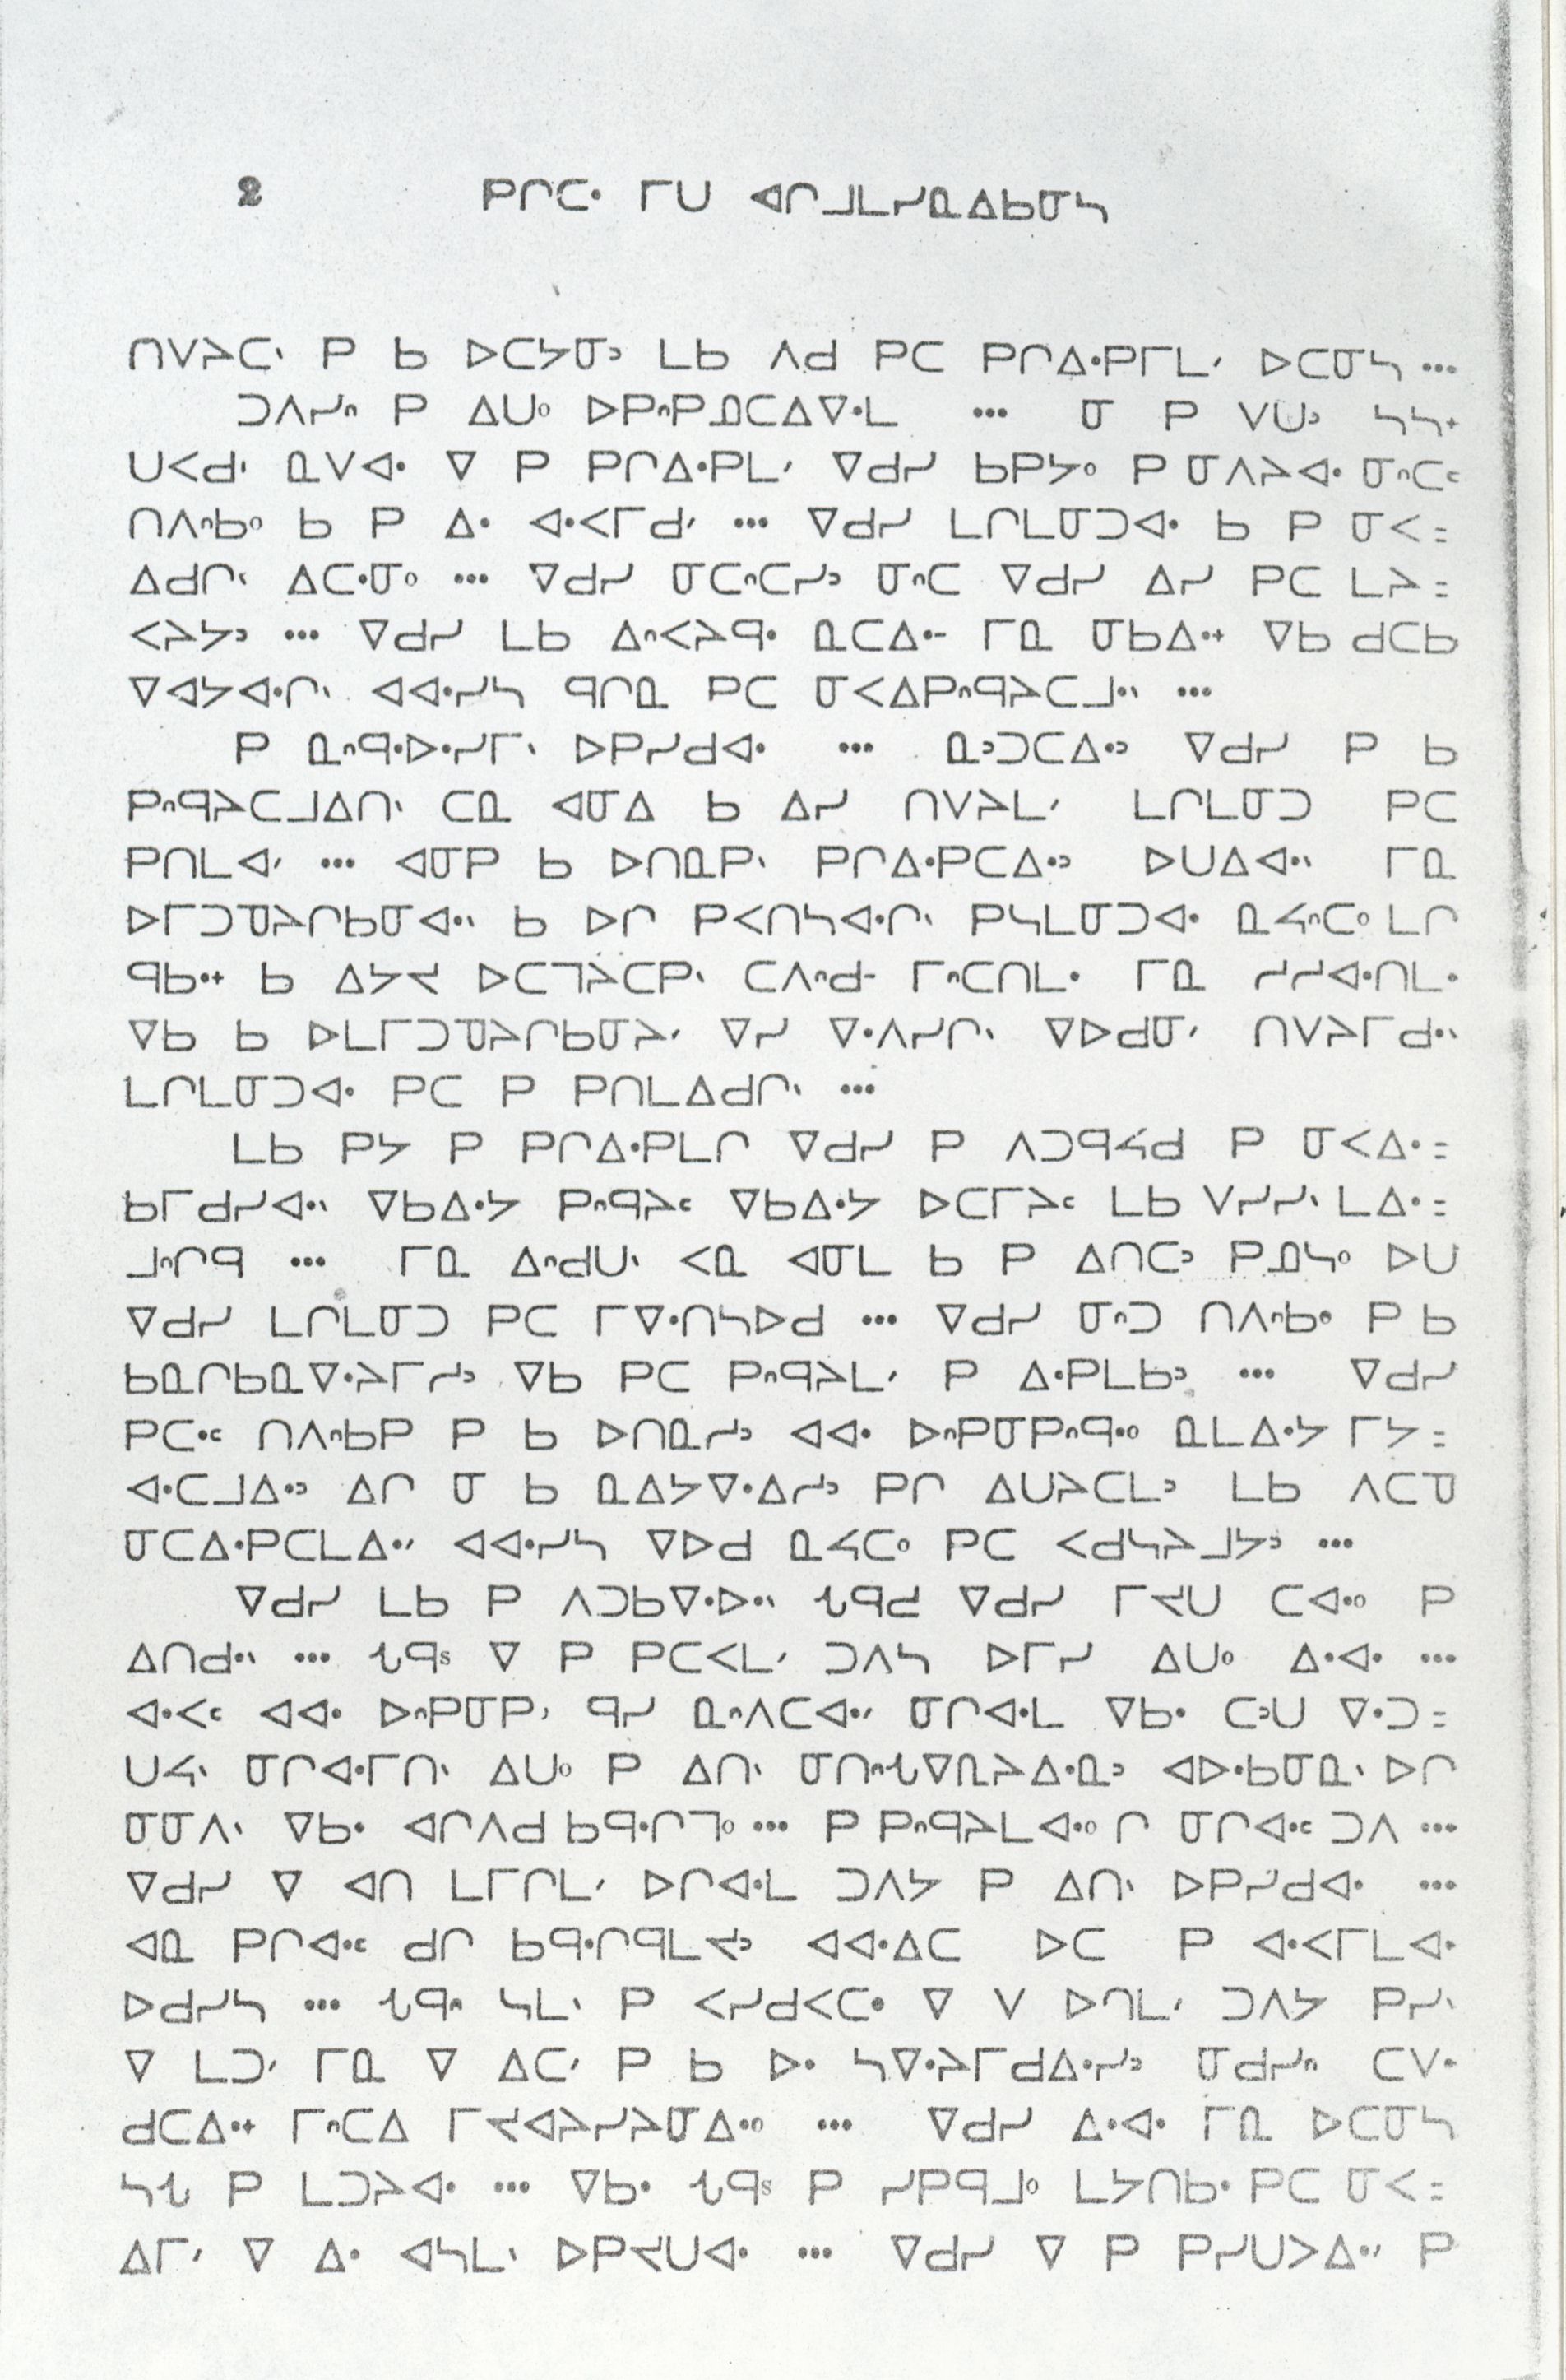 2 ᑭᒋᑕᐧ ᒥᑌ ᐊᒋᒧᒪᓯᓇᐃᑲᓂᓴ
ᑎᐯᔨᑕᐠ ᑭ ᑲ ᐅᑕᔭᓂᐣ ᒪᑲ ᐱᑯ ᑭᑕ ᑭᒋᐃᐧᑭᒥᒪᐟ ᐅᑕᓂᓴ ...
ᑐᐱᓯᐢ ᑭ ᐃᑌᐤ ᐅᑭᐢᑭᓄᑕᐃᐁᐧᒪ ... ᓂ ᑭ ᐯᑌᐣ ᓴᓴᕀ
ᑌᐸᑯᐠ ᓇᐯᐊᐧ ᐁ ᑭ ᑭᒋᐃᐧᑭᒪᐟ ᐁᑯᓯ ᑲᑭᔭᐤ ᑭ ᓂᐱᔨᐊᐧ ᓂᐢᑕᒼ
ᑎᐱᐢᑲᐤ ᑲ ᑭ ᐃᐧ ᐊᐧᐸᒥᑯᐟ ... ᐁᑯᓯ ᒪᒋᒪᓂᑐᐊᐧ ᑲ ᑭ ᓂᐸ=
ᐃᑯᒋᐠ ᐃᑕᐧᓂᐤ ... ᐁᑯᓯ ᓂᑕᐢᑕᓯᐣ ᓂᐢᑕ ᐁᑯᓯ ᐃᓯ ᑭᑕ ᒪᔨ=
ᐸᔨᔭᐣ ... ᐁᑯᓯ ᒪᑲ ᐃᐢᐸᔨᑫᐧ ᓇᑕᐃᐧ- ᒥᓇ ᓂᑲᐃᐧᕀ ᐁᑲ ᑯᑕᑲ
ᐁᐊᔭᐊᐧᒋᐠ ᐊᐊᐧᓯᓴ ᑫᒋᓇ ᑭᑕ ᓂᐸᐃᑭᐢᑫᔨᑕᒧᐧᐠ ...
ᑭ ᓇᐢᑫᐧᐅᐧᓯᒥᐠ ᐅᑭᓯᑯᐊᐧ ... ᓇᐣᑐᑕᐃᐧᐣ ᐁᑯᓯ ᑭ ᑲ
ᑭᐢᑫᔨᑕᒧᐃᑎᐠ ᑕᓇ ᐊᓂᐃ ᑲ ᐃᓯ ᑎᐯᔨᒪᐟ ᒪᒋᒪᓂᑐ ᑭᑕ
ᑭᑎᒪᐊᐟ ... ᐊᓂᑭ ᑲ ᐅᑎᓇᑭᐠ ᑭᒋᐃᐧᑭᑕᐃᐧᐣ ᐅᑌᐃᐊᐧᐠ ᒥᓇ
ᐅᒥᑐᓀᔨᒋᑲᓂᐊᐧᐠ ᑲ ᐅᒋ ᑭᐸᑎᓴᐊᐧᒋᐠ ᑭᓴᒪᓂᑐᐊᐧ ᓇᔦᐢᑕᐤ ᒪᒋ
ᑫᑲᐧᕀ ᑲ ᐃᔭᓯ ᐅᑕᒣᔨᑕᑭᐠ ᑕᐱᐢᑯ- ᒥᐢᑕᑎᒪᐧ ᒥᓇ ᓯᓯᐊᐧᑎᒪᐧ
ᐁᑲ ᑲ ᐅᒪᒥᑐᓀᔨᒋᑲᓂᔨᐟ ᐁᓯ ᐁᐧᐱᓯᒋᐠ ᐁᐅᑯᓂᐟ ᑎᐯᔨᒥᑯᐧᐠ
ᒪᒋᒪᓂᑐᐊᐧ ᑭᑕ ᑭ ᑭᑎᒪᐃᑯᒋᐠ ...
ᒪᑲ ᑭᔭ ᑭ ᑭᒋᐃᐧᑭᒪᒋ ᐁᑯᓯ ᑭ ᐱᑐᑫᔦᑯ ᑭ ᓂᐸᐃᐧ=
ᑲᒥᑯᓯᐊᐧᐠ ᐁᑲᐃᐧᔭ ᑭᐢᑫᔨᒼ ᐁᑲᐃᐧᔭ ᐅᑕᒥᔨᒼ ᒪᑲ ᐯᓯᓯᐠ ᒪᐃᐧ=
ᒧᐢᒋᑫ ... ᒥᓇ ᐃᐢᑯᑌᐠ ᐸᓇ ᐊᓂᒪ ᑲ ᑭ ᐃᑎᑕᐣ ᑭᓄᓴᐤ ᐅᑌ
ᐁᑯᓯ ᒪᒋᒪᓂᑐ ᑭᑕ ᒥᐁᐧᑎᓴᐅᑯ ... ᐁᑯᓯ ᓂᐢᑐ ᑎᐱᐢᑲᐧ ᑭ ᑲ
ᑲᓇᒋᑲᓇᐁᐧᔨᒥᓯᐣ ᐁᑲ ᑭᑕ ᑭᐢᑫᔨᒪᐟ ᑭ ᐃᐧᑭᒪᑲᐣ ... ᐁᑯᓯ
ᑭᑕᐧᒼ ᑎᐱᐢᑲᑭ ᑭ ᑲ ᐅᑎᓇᓯᐣ ᐊᐊᐧ ᐅᐢᑭᓂᑭᐢᑫᐧᐤ ᓇᒪᐃᐧᔭ ᒥᔭ=
ᐊᐧᑕᒧᐃᐧᐣ ᐃᒋ ᓂ ᑲ ᓇᐃᔭᐁᐧᐃᓯᐣ ᑭᒋ ᐃᑌᔨᑕᒪᐣ ᒪᑲ ᐱᑕᓀ
ᓂᑕᐃᐧᑭᑕᒪᐃᐧᐟ ᐊᐊᐧᓯᓴ ᐁᐅᑯ ᓇᔦᑕᐤ ᑭᑕ ᐸᑯᓴᔨᒧᔭᐣ ...
ᐁᑯᓯ ᒪᑲ ᑭ ᐱᑐᑲᐁᐧᐅᐧᐠ ᖠᑫᑯ ᐁᑯᓯ ᒥᔪᑌ ᑕᐊᐧᐤ ᑭ
ᐃᑎᑯᐧᐠ ... ᖠᑫˢ ᐁ ᑭ ᑭᑕᐸᒪᐟ ᑐᐱᓴ ᐅᒥᓯ ᐃᑌᐤ ᐃᐧᐊᐧ ...
ᐊᐧᐸᒼ ᐊᐊᐧ ᐅᐢᑭᓂᑭᐣ ᑫᓯ ᓇᐢᐱᑕᐊᐧᐟ ᓂᒋᐊᐧᒪ ᐁᑲᐧ ᑕᐣᑌ ᐁᐧᑐ=
ᑌᔦᐠ ᓂᒋᐊᐧᒥᑎᐠ ᐃᑌᐤ ᑭ ᐃᑎᐠ ᓂᑎᐢᖠᐁᐱᔨᐃᐧᓇᐣ ᐊᐅᐧᑲᓂᓇᐠ ᐅᒋ
ᓂᓂᐱᐠ ᐁᑲᐧ ᐊᒋᐱᑯ ᑲᑫᐧᒋᒣᐤ ... ᑭ ᑭᐢᑫᔨᒪᐊᐧᐤ ᒋ ᓂᒋᐊᐧᒼ ᑐᐱ ...
ᐁᑯᓯ ᐁ ᐊᑎ ᒪᒥᒋᒪᐟ ᐅᒋᐊᐧᒪ ᑐᐱᔭ ᑭ ᐃᑎᐠ ᐅᑭᓯᑯᐊᐧ ...
ᐊᓇ ᑭᒋᐊᐧᒼ ᑯᒋ ᑲᑫᐧᒋᑫᒪᔪᐣ ᐊᐊᐧᐃᑕ ᐅᑕ ᑭ ᐊᐧᐸᒥᒪᐊᐧ
ᐅᑯᓯᓴ ... ᖠᑫᐢ ᓴᒪᐠ ᑭ ᐸᓯᑯᐸᑕᐧ ᐁ ᐯ ᐅᑎᒪᐟ ᑐᐱᔭ ᑭᓯᐠ
ᐁ ᒪᑐᐟ ᒥᓇ ᐁ ᐃᑕᐟ ᑭ ᑲ ᐅᐧ ᓴᐁᐧᔨᒥᑯᐃᐧᓯᐣ ᓂᑯᓯᐢ ᑕᐯᐧ
ᑯᑕᐃᐧᕀ ᒥᐢᑕᐃ ᒥᔪᐊᔨᓯᔨᓂᐃᐧᐤ ... ᐁᑯᓯ ᐃᐧᐊᐧ ᒥᓇ ᐅᑕᓂᓴ
ᓴᖠ ᑭ ᒪᑐᔨᐊᐧ ... ᐁᑲᐧ ᖠᑫˢ ᑭ ᓯᑭᑫᒧᐤ ᒪᔭᑎᑲᐧ ᑭᑕ ᓂᐸ=
ᐃᒥᐟ ᐁ ᐃᐧ ᐊᓴᒪᐠ ᐅᑭᔪᑌᐊᐧ ... ᐁᑯᓯ ᐁ ᑭ ᑭᓯᑌᐳᐃᐧᐟ ᑭ